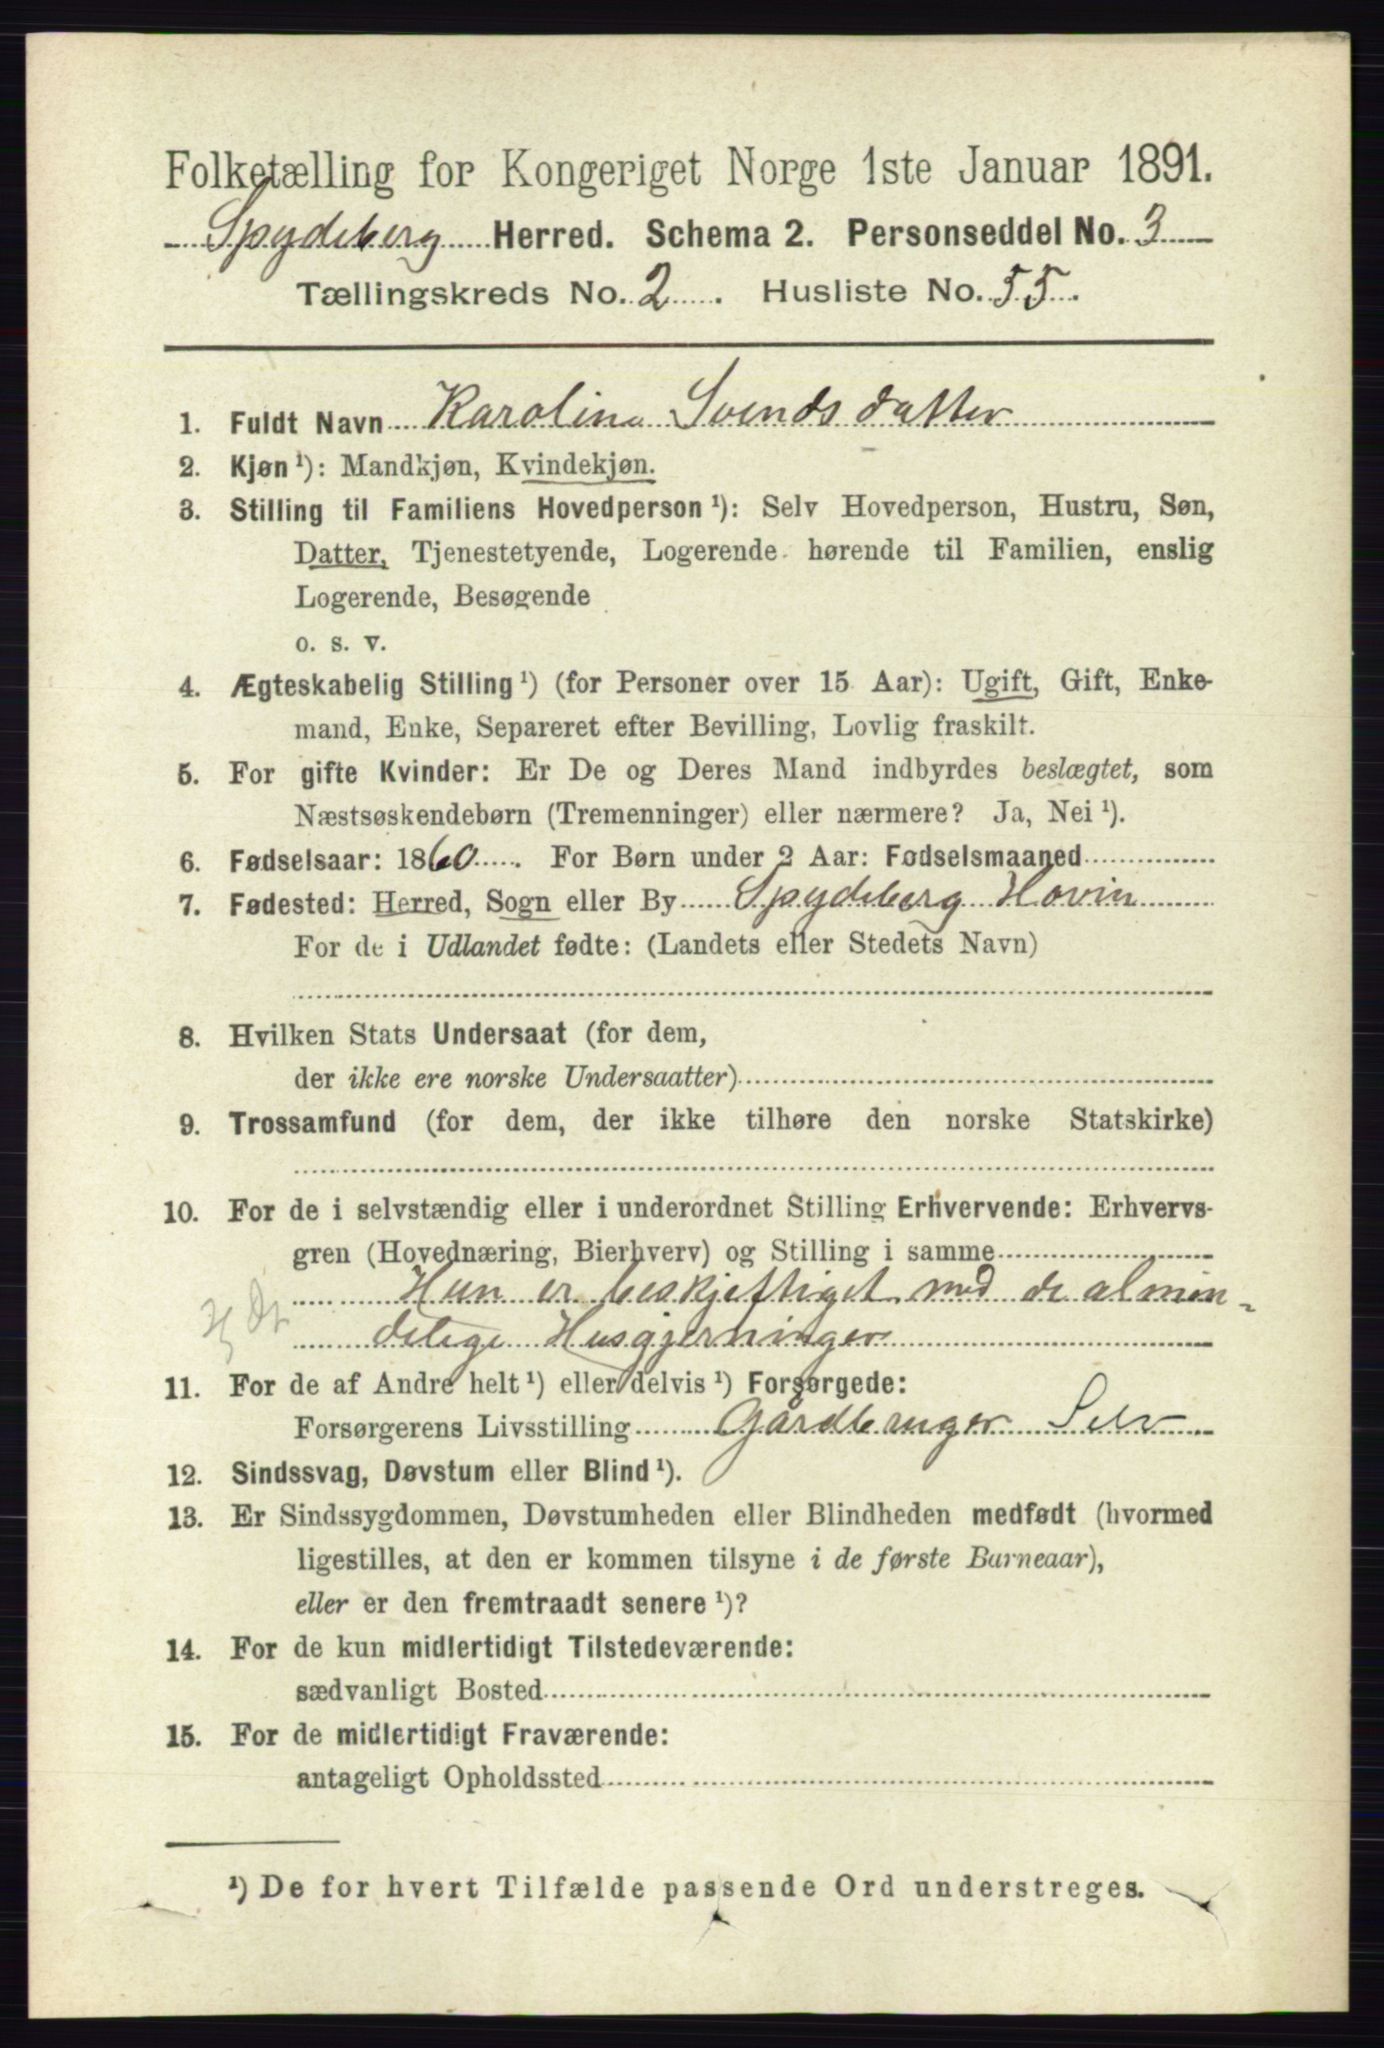 Folketælling for Kongeriget Norge 1ste Januar 1891.
Spydeberg Herred. Schema 2. Personseddel No. 3
Tællingskreds No. 2. Husliste No. 55.
1. Fuldt Navn Karoline Svendsdatter
2. Kjøn ¹): Mandkjøn, Kvindekjøn.
3. Stilling til Familiens Hovedperson ¹): Selv Hovedperson, Hustru, Søn,
Datter, Tjenestetyende, Logerende hørende til Familien, enslig
Logerende, Besøgende
o. s. v.
4. Ægteskabelig Stilling ¹) (for Personer over 15 Aar): Ugift, Gift, Enke-
mand, Enke, Separeret efter Bevilling, Lovlig fraskilt.
5. For gifte Kvinder: Er De og Deres Mand indbyrdes beslægtet, som
Næstsøskendebørn (Tremenninger) eller nærmere? Ja, Nei ¹).
6. Fødselsaar: 1860. For Børn under 2 Aar: Fødselsmaaned
7. Fødested: Herred, Sogn eller By Spydeberg Hovin
For de i Udlandet fødte: (Landets eller Stedets Navn)
8. Hvilken Stats Undersaat (for dem,
der ikke ere norske Undersaatter)
9. Trossamfund (for dem, der ikke tilhøre den norske Statskirke)
10. For de i selvstændig eller i underordnet Stilling Erhvervende: Erhvervs-
gren (Hovednæring, Bierhverv) og Stilling i samme
Hun er beskjeftiget med de almin-
delige Husgjerninger
11. For de af Andre helt ¹) eller delvis ¹) Forsørgede:
Forsørgerens Livsstilling Gårdbruger Selv
12. Sindssvag, Døvstum eller Blind ¹).
13. Er Sindssygdommen, Døvstumheden eller Blindheden medfødt (hvormed
ligestilles, at den er kommen tilsyne i de første Barneaar),
eller er den fremtraadt senere ¹)?
14. For de kun midlertidigt Tilstedeværende:
sædvanligt Bosted
15. For de midlertidigt Fraværende:
antageligt Opholdssted
¹) De for hvert Tilfælde passende Ord understreges.